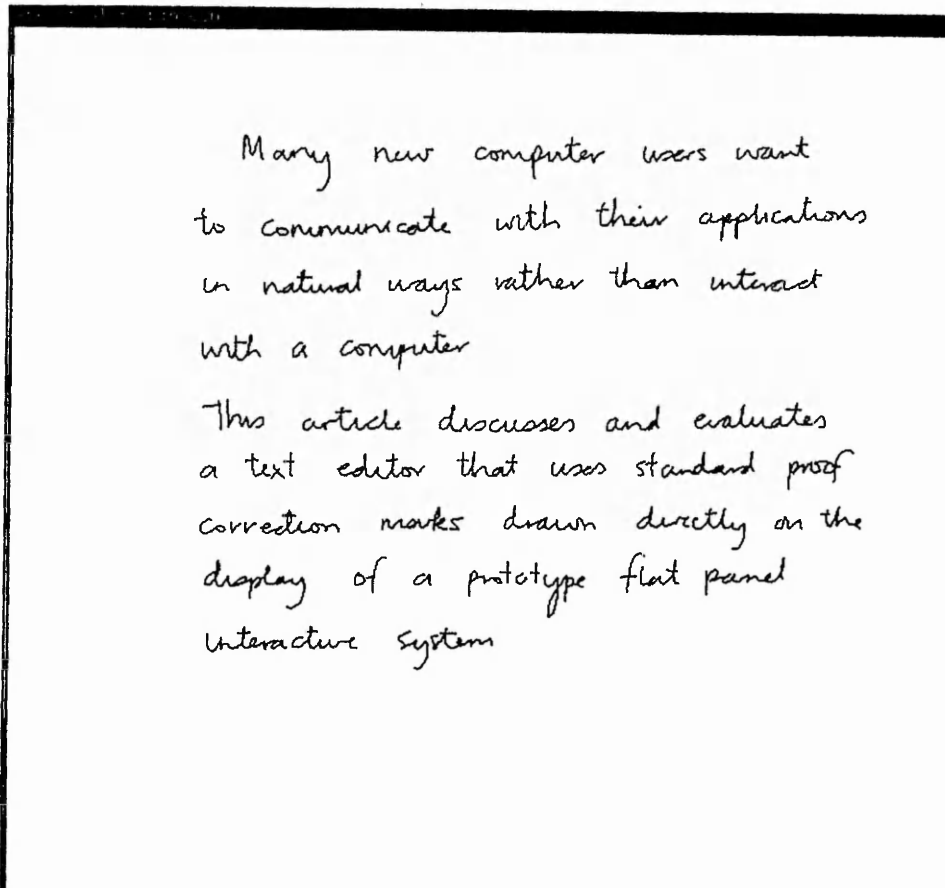 Many new computer users want
to communicate with their applications
in natural ways rather than interact
with a computer
This article discusses and evaluates
a text editor that uses standard proof
correction marks drawn directly on the
display of a prototype flat panel
interactive system